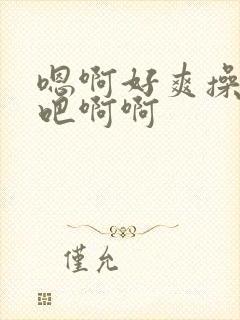 嗯啊好爽操
吧啊啊
僅允